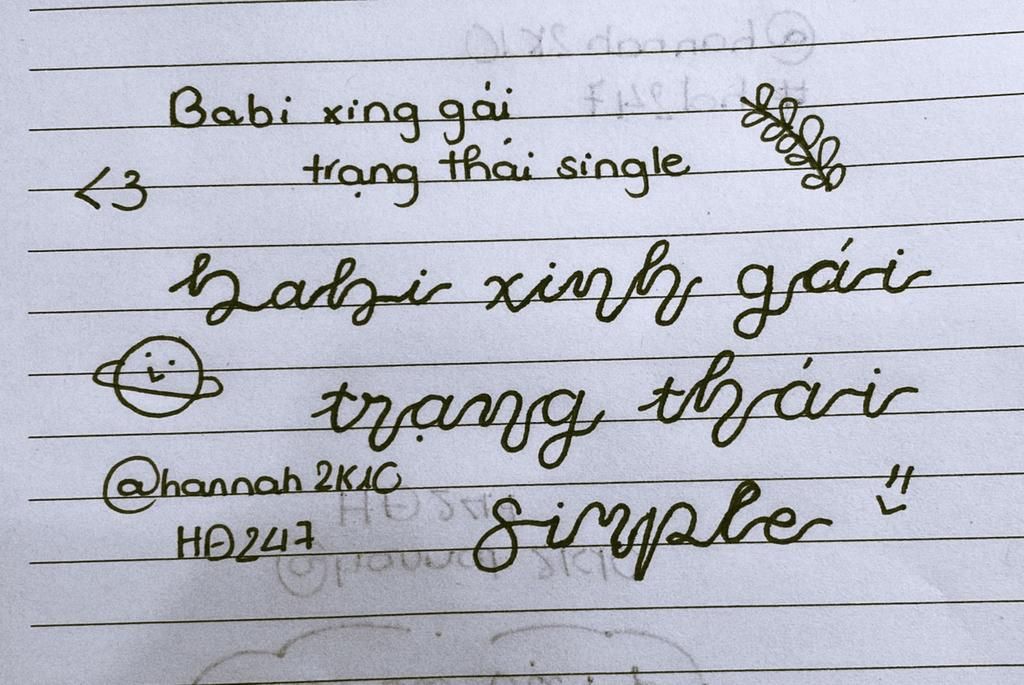 Babi xing gái
trạng thái single
<3
babi xinh gái
trạng thái
simple
@hannah2K1C
HĐ247